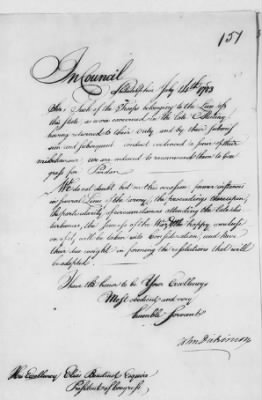 151
In Council
Philadelphia July 14th 1783
Sir, Such of the Troops belonging to the Line of
this State, as were concerned in the late Mutiny
having returned to their duty, and by their
and subsequent conduct evidenced a sense of their
misbehaviour, we are induced to recommend them to Con
gress for Pardon.
We do not doubt but on this occasion former instances
in several Lines of the Army, the proceedings thereupon,
the particularity of circumstances attending the late dis
turbances, the of the War & the happy
of it, will be taken into Consideration, and have
their due weight in forming the resolutions that will
be adopted.
I have the honor to be Your Excellency's
Most obedient and very
humble Servant
John Dickinson
His Excellency Elias Boudinot Esquire
President of Congress